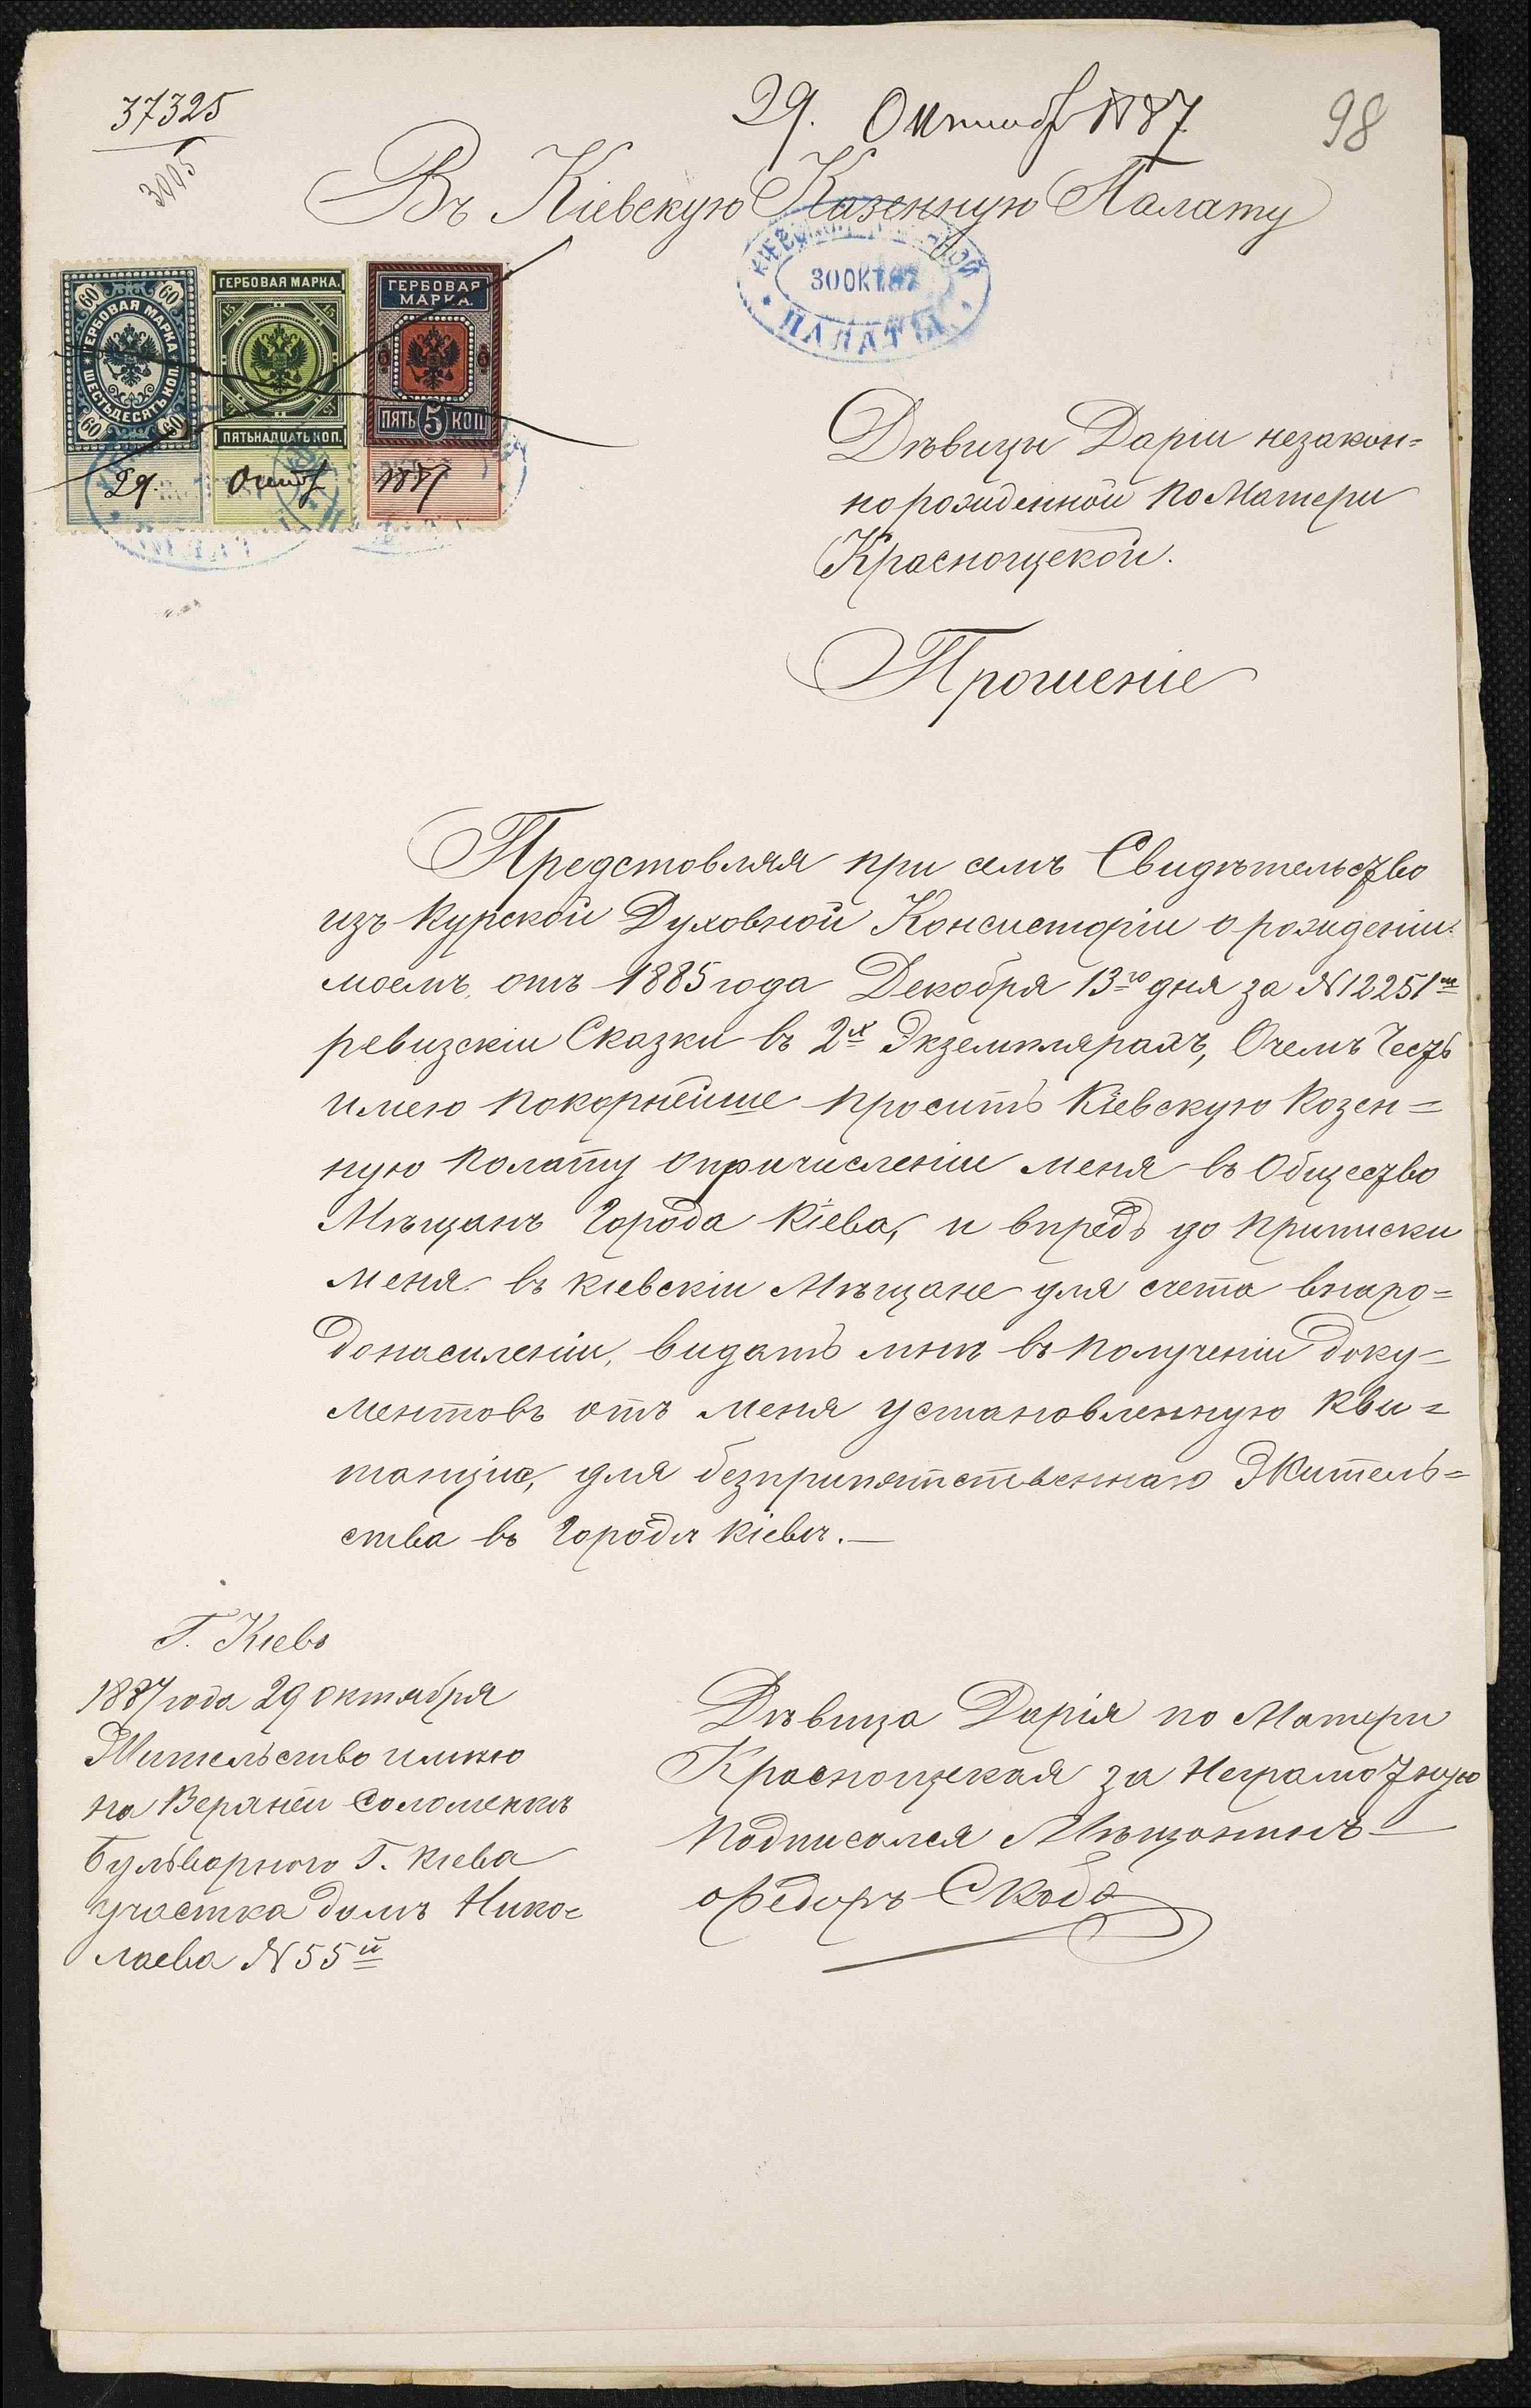 37325
3005
29. Октября 1887
98
Въ Кіевскую Казенную Палату
30 ОКТ. 87
ПАЛАТЫ
60 60
ГЕРБОВАЯ МАРКА
ШЕСТЬДЕСЯТЪ КОП.
60 60
29
ГЕРБОВАЯ МАРКА.
15 15
ПЯТЬНАДЦАТЬ КОП.
Октяб
ГЕРБОВАЯ
МАРКА.
ПЯТЬ 5 КОП
1887
Дѣвицы Даріи незакон=
норожденной по Матери
Краснощекой.
Прошеніе
Предстовляя при семъ Свидѣтельство
изъ Курской Духовной Консисторіи о рожденіи
моемъ, отъ 1885 года Декобря 13го дня за N 12251м
ревизскіи Сказки въ 2х Экземплярахъ, Очемъ Честь
имею покорнейше просить Кіевскую Козен=
ную Полату опричисленіи меня въ Общество
Мѣщанъ Города Кіева, и впредь до приписки
меня въ кіевскіи Мѣщане для счета внаро=
донасиленіи, видать мнѣ въ получении доку=
ментовъ отъ меня установленную Кви=
танцію, для безприпятственнаго Житель=
ства въ Городѣ Кіевѣ.—
Г. Кіевъ
1887 года 29 Октября
Жительство имѣю
на Верхней Соломенкѣ
Бульварного Г. Кіева
участка домъ Нико=
лаева N 55й
Дѣвица Дарія по Матери
Краснощекая за Неграмотную
Подписался Мѣщонинъ
Ѳедоръ Скоба